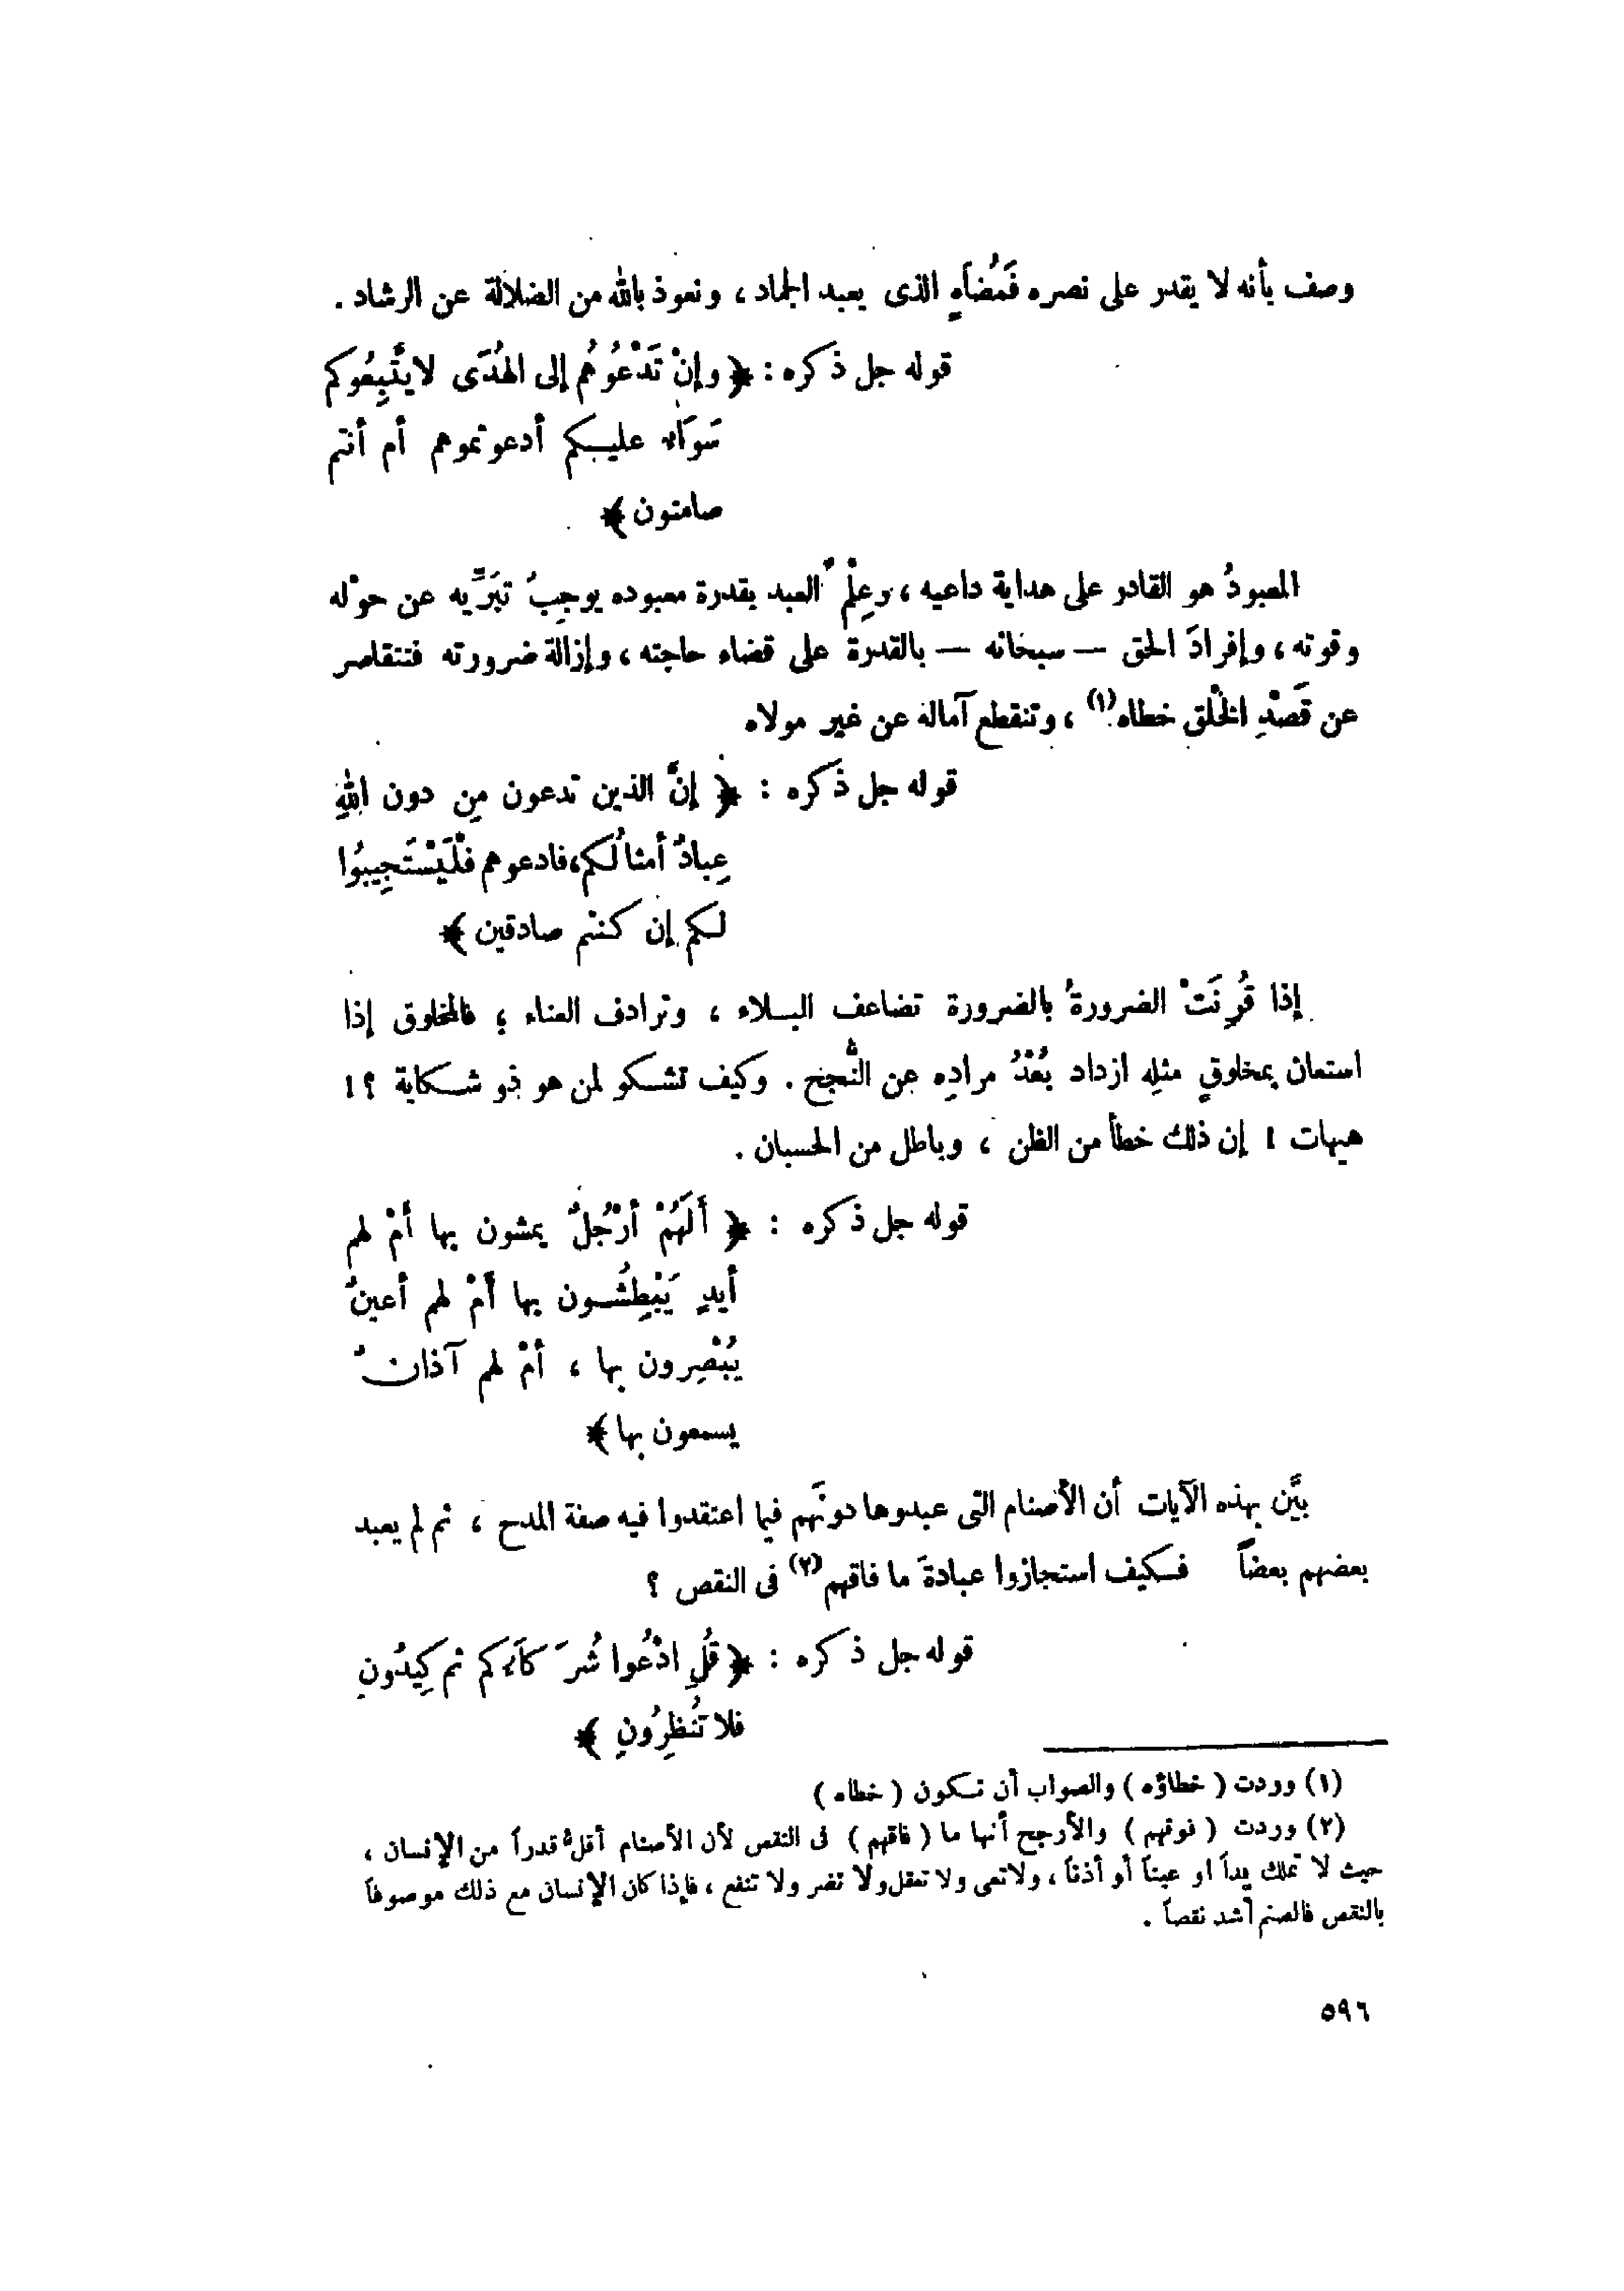 وصف بأنه لا يقدر على نصره فَمُضَاهٍ الذى يعبد الجماد ، ونعوذ بالله من الضلالة عن الرشاد .
قوله جل ذكره : ﴿ وإنْ تَدْعُوهُم إلى الهُدَى لا يَتَّبِعُوكم
سَوَآء عليكم أدعوتموهم أم أنتم
صامتون ﴾
المعبودُ هو القادر على هداية داعيه ، وعِلْمُ العبد بقدرة معبوده يوجِبُ تَبَرِّيه عن حوْله
وقوته ، وإفرادَ الحق — سبحانه — بالقدرة على قضاء حاجته ، وإزالة ضرورته فتتقاصر
عن قَصْدِ الخَلْق خطاه(١) ، وتنقطع آماله عن غير مولاه
قوله جل ذكره : ﴿ إنَّ الذين تدعون مِن دون اللهِ
عِبادٌ أمثالُكم، فادعوهم فَلْيَسْتَجِيبُوا
لكم إن كنتم صادقين ﴾
إذا قُرِنَتْ الضرورةُ بالضرورة تضاعف البلاء ، وترادف العناء ؛ فالمخلوق إذا
استعان بمخلوقٍ مثلِه ازداد بُعْدُ مرادِه عن النُّجح . وكيف تشكو لمن هو ذو شكاية ؟!
هيهات ! إن ذلك خطأ من الظن ، وباطل من الحسبان .
قوله جل ذكره : ﴿ أَلَهُمْ أرْجُلٌ يمشون بها أمْ لهم
أيدٍ يَبْطِشُون بها أَمْ لهم أعينٌ
يُبْصِرون بها ، أمْ لهم آذانٌ
يسمعون بها ﴾
بيَّن بهذه الآيات أن الأصنام التى عبدوها دونَهم فيما اعتقدوا فيه صفة المدح ، ثم لم يعبد
بعضهم بعضاً فكيف استجازوا عبادةَ ما فاقهم(٢) فى النقص ؟
قوله جل ذكره : ﴿ قُلِ ادْعُوا شُرَكَآءكم ثم كِيدُونِ
فلا تُنظِرُونِ ﴾
(١) وردت ( خطاؤه ) والصواب أن تكون ( خطاه )
(٢) وردت ( فوقهم ) والأرجح أنها ما ( فاقهم ) فى النقص لأن الأصنام أقلُّ قدراً من الإنسان ،
حيث لا تملك يداً او عيناً أو أذناً ، ولا تعى ولا تعقل ولا تضر ولا تنفع ، فإذا كان الإنسان مع ذلك موصوفاً
بالنقص فالصنم أشد نقصاً .
٥٩٦